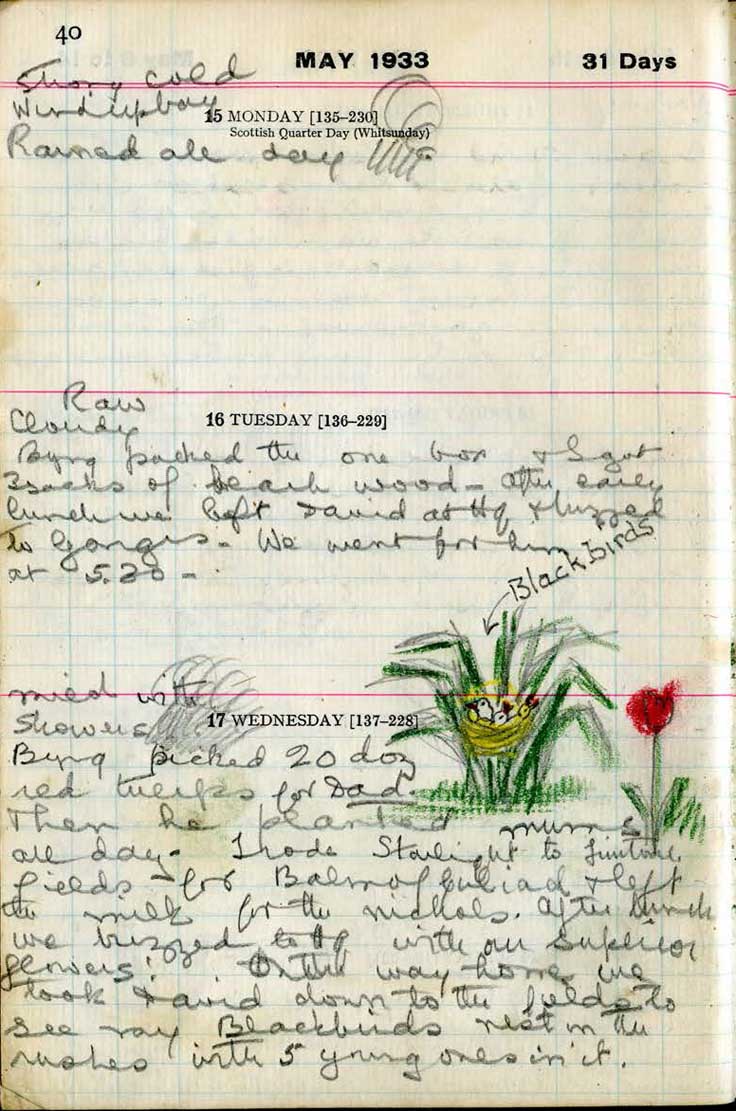 40
MAY 1933 31 Days
Strong cold
Wind up bay
15 MONDAY [135–230]
Scottish Quarter Day (Whitsunday)
Rained all day
Raw
Cloudy
16 TUESDAY [136–229]
Byng packed the one box & I got
3 sacks of beach wood – After early
lunch we left David at Hq & buzzed
to Ganges – We went for him
at 5.30 –
Blackbirds
mied with
Showers
17 WEDNESDAY [137–228]
Byng picked 20 doz
red tulips for Dad.
Then he planted mums
all day – I rode Starlight to
fields – for Balm of Giliad & left
the milk for the Nichols. After lunch
we buzzed to Hq with our superior
flowers! On the way home we
took David down to the fields to
see my Blackbirds nest in the
rushes with 5 young ones in it.